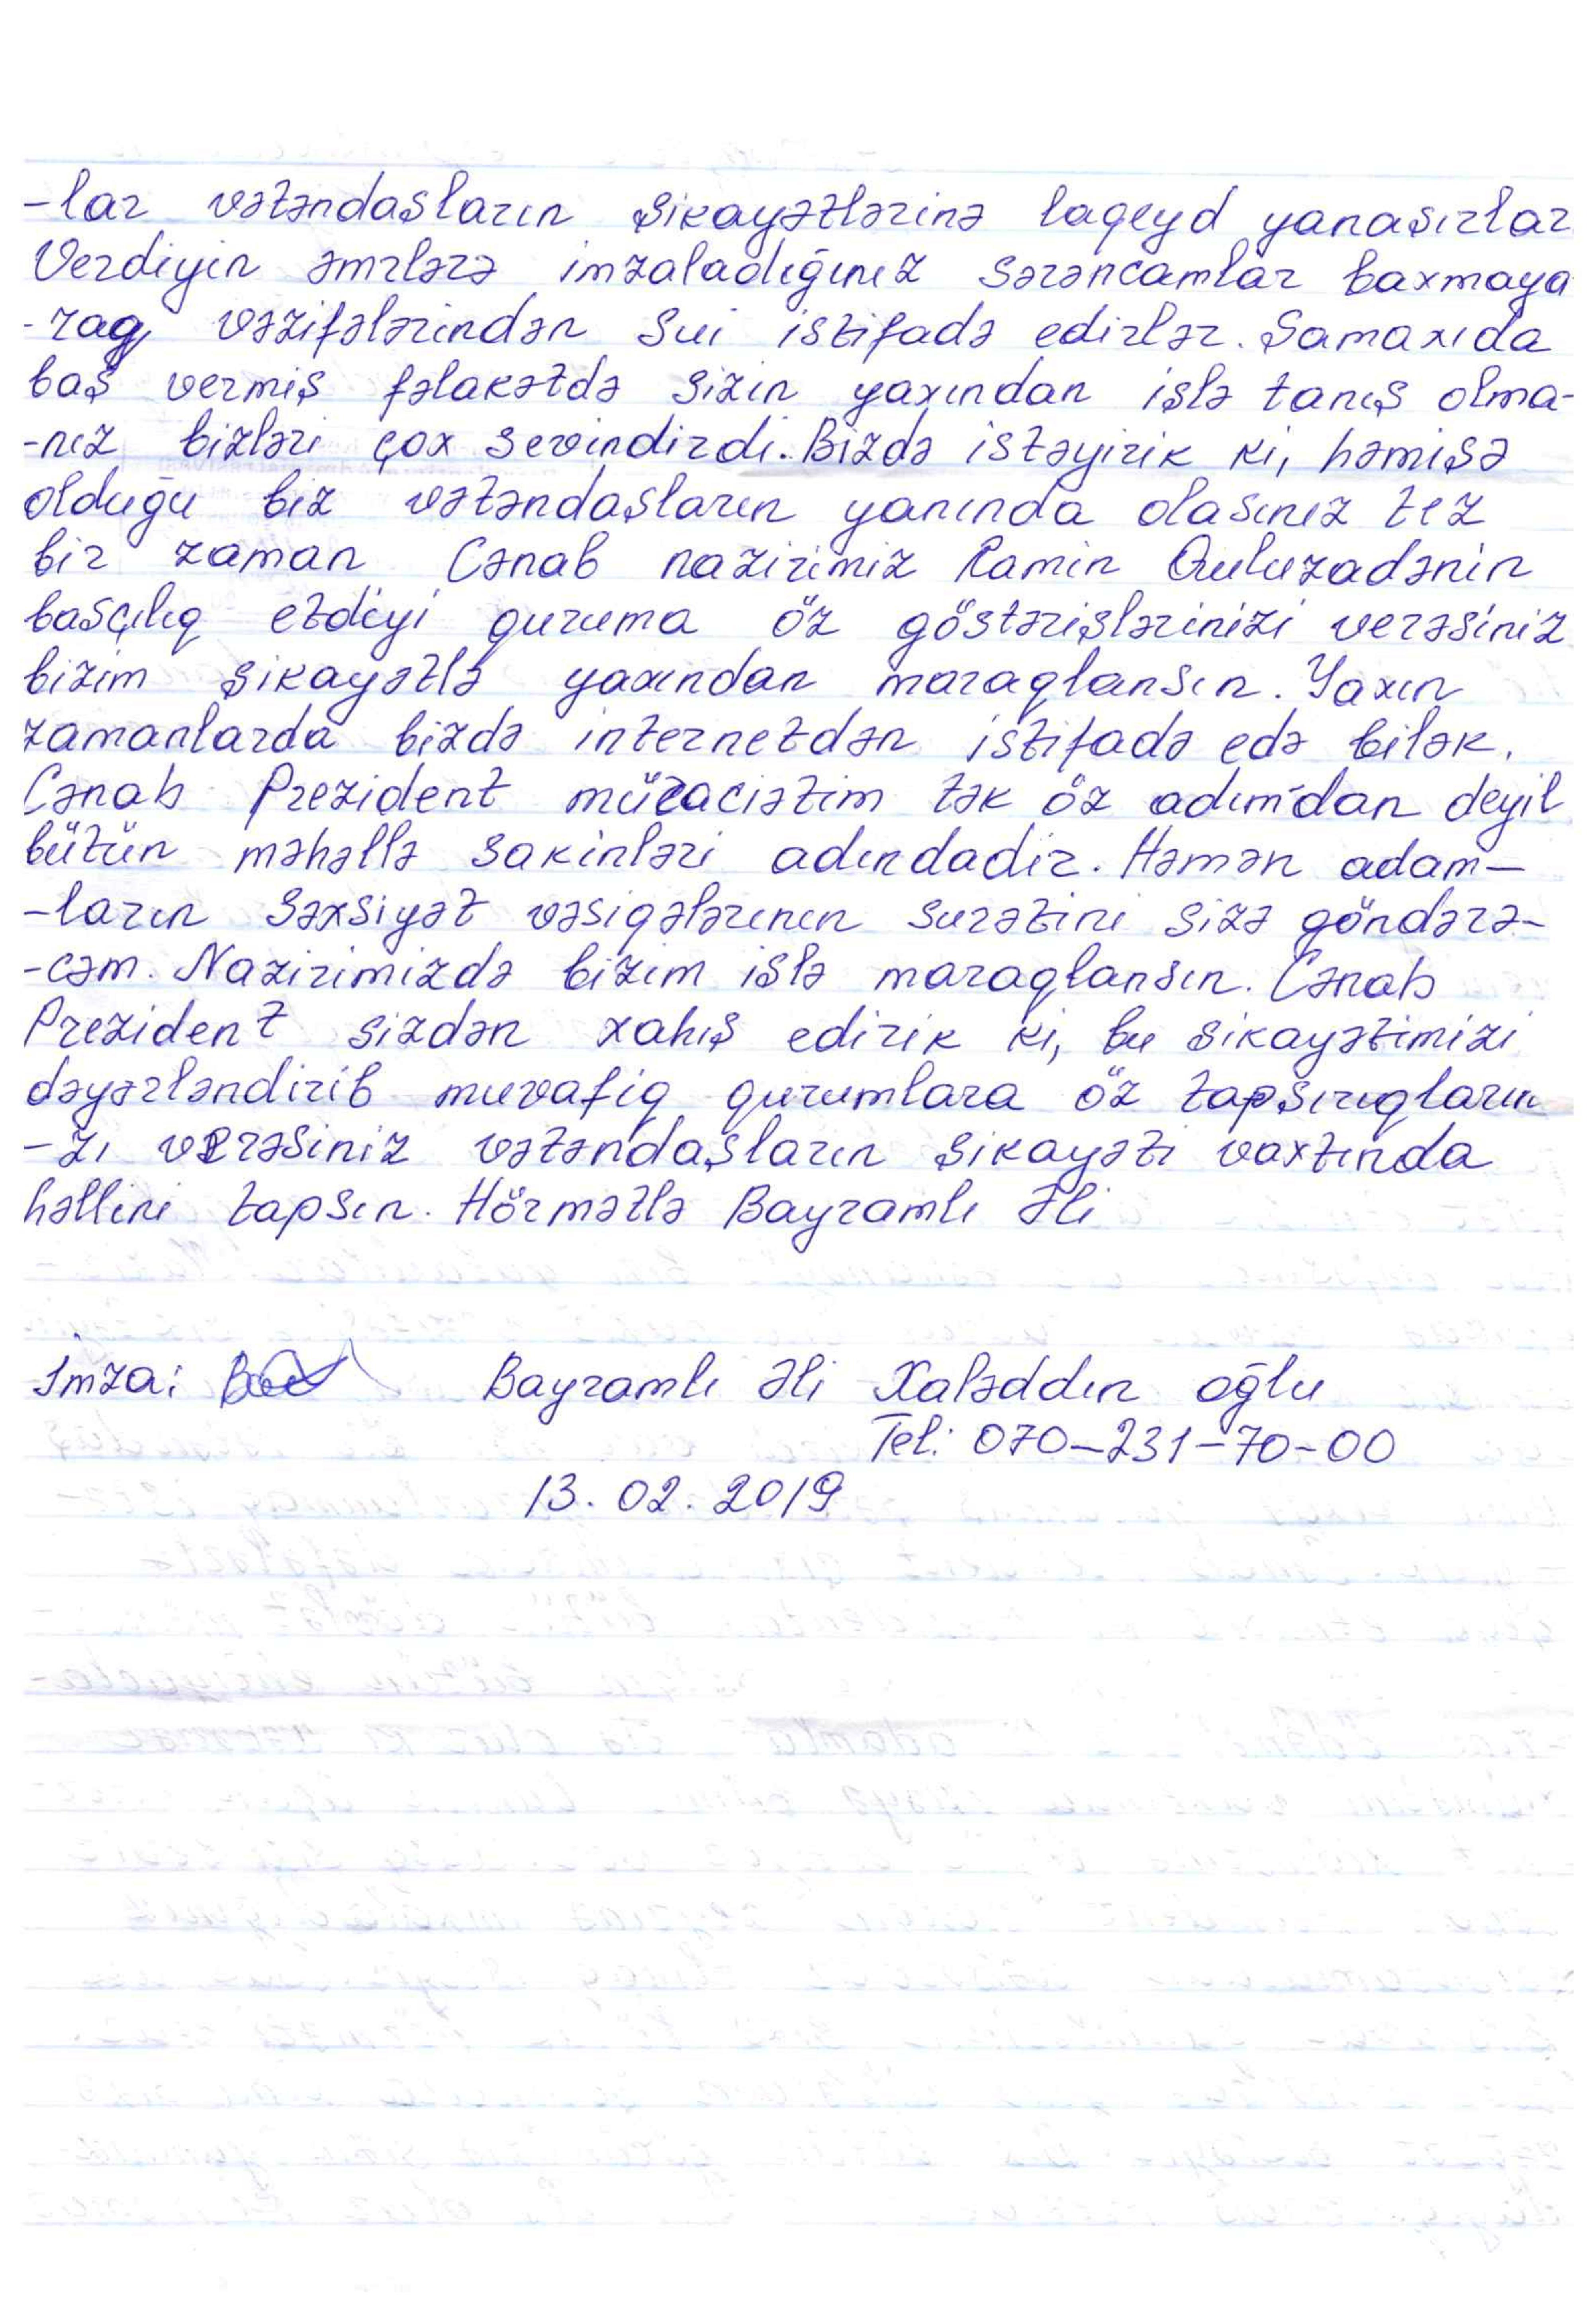 -lar vətəndaşların şikayətlərinə laqeyd yanaşırlar
Verdiyin əmrlərə imzaladığınız sərəncamlar baxmaya
-raq vəzifələrindən sui istifadə edirlər. Şamaxıda
baş vermiş fəlakətdə sizin yaxından işlə tanış olma-
-nız bizləri çox sevindirdi. Bizdə istəyirik ki, həmişə
olduğu biz vətəndaşların yanında olasınız tez
bir zaman Cənab nazirimiz Ramin Quluzadənin
başçılıq etdiyi quruma öz göstərişlərinizi verəsiniz
bizim şikayətlə yaxından maraqlansın. Yaxın
zamanlarda bizdə internetdən istifadə edə bilək.
Cənab Prezident müraciətim tək öz adımdan deyil
bütün məhəllə sakinləri adındadir. Həmən adam-
-ların şəxsiyət vəsiqələrının surətini sizə göndərə-
-cəm. Nazirimizdə bizim işlə maraqlansın. Cənab
Prezident sizdən xahış edirik ki, bu şikayətimizi
dəyərləndirib muvafiq qurumlara öz tapşırıqların
-zı verəsiniz vətəndaşların şikayəti vaxtında
həllini tapsın. Hörmətlə Bayramlı Əli
İmza:
Bayramlı Əli Xaləddın oğlu
Tel: 070-231-70-00
13.02.2019